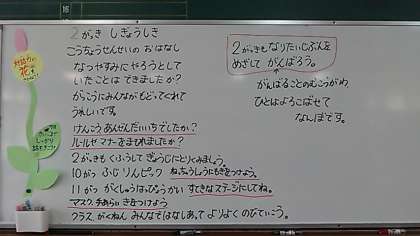 2がっき しぎょうしき
こうちょうせんせいの おはなし
なつやすみにやろうとして
いたことは できましたか？
がっこうにみんながもどってくれて
うれしいです。
けんこう あんぜんだいいちでしたか？
ルールやマナーをまもれましたか？
2がっきもくふうして ぎょうじにとりくみましょう。
10がつ ふじリンピック ねっちゅうしょうにもきをつけよう。
11がつ がくしゅうはっぴょうかい すてきなステージにしてね。
マスク、手あらい きをつけよう
クラス、がくねん みんなではなしあって よりよくのびていこう。
2がっきもなりたいじぶんを
めざして がんばろう。
がんばることのむこうがわ
ひとはよろこばせて
なんぼです。
花